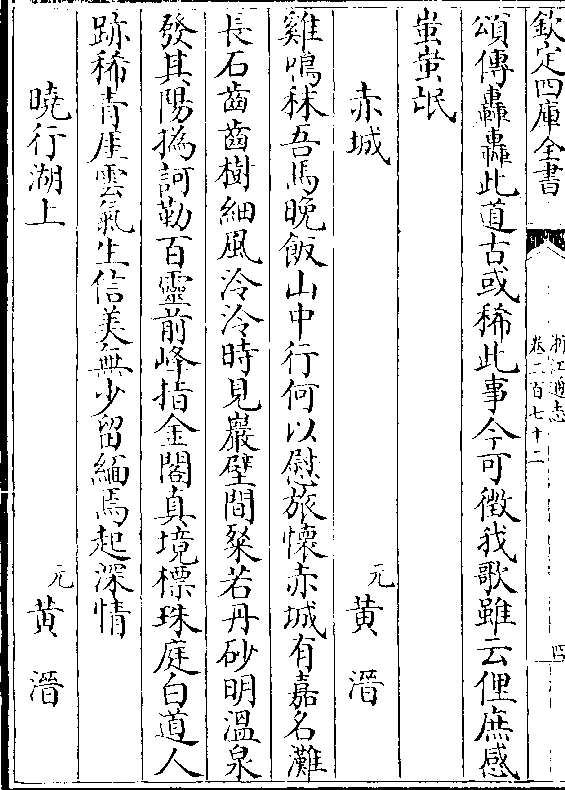 欽定四庫全書
浙江通志
卷二百七十二
四
頌傳轟轟此道古或稀此事今可徵我歌雖云俚庶感
蚩蚩氓
赤城 元 黄溍
雞鳴秣吾馬晚飯山中行何以慰旅懷赤城有嘉名灘
長石齒齒樹細風泠泠時見巖壁間粲若丹砂明溫泉
發其陽撝訶勒百靈前峰指金閣真境標珠庭白道人
跡稀青厓雲氣生信美無少留緬焉起深情
曉行湖上 元 黄溍